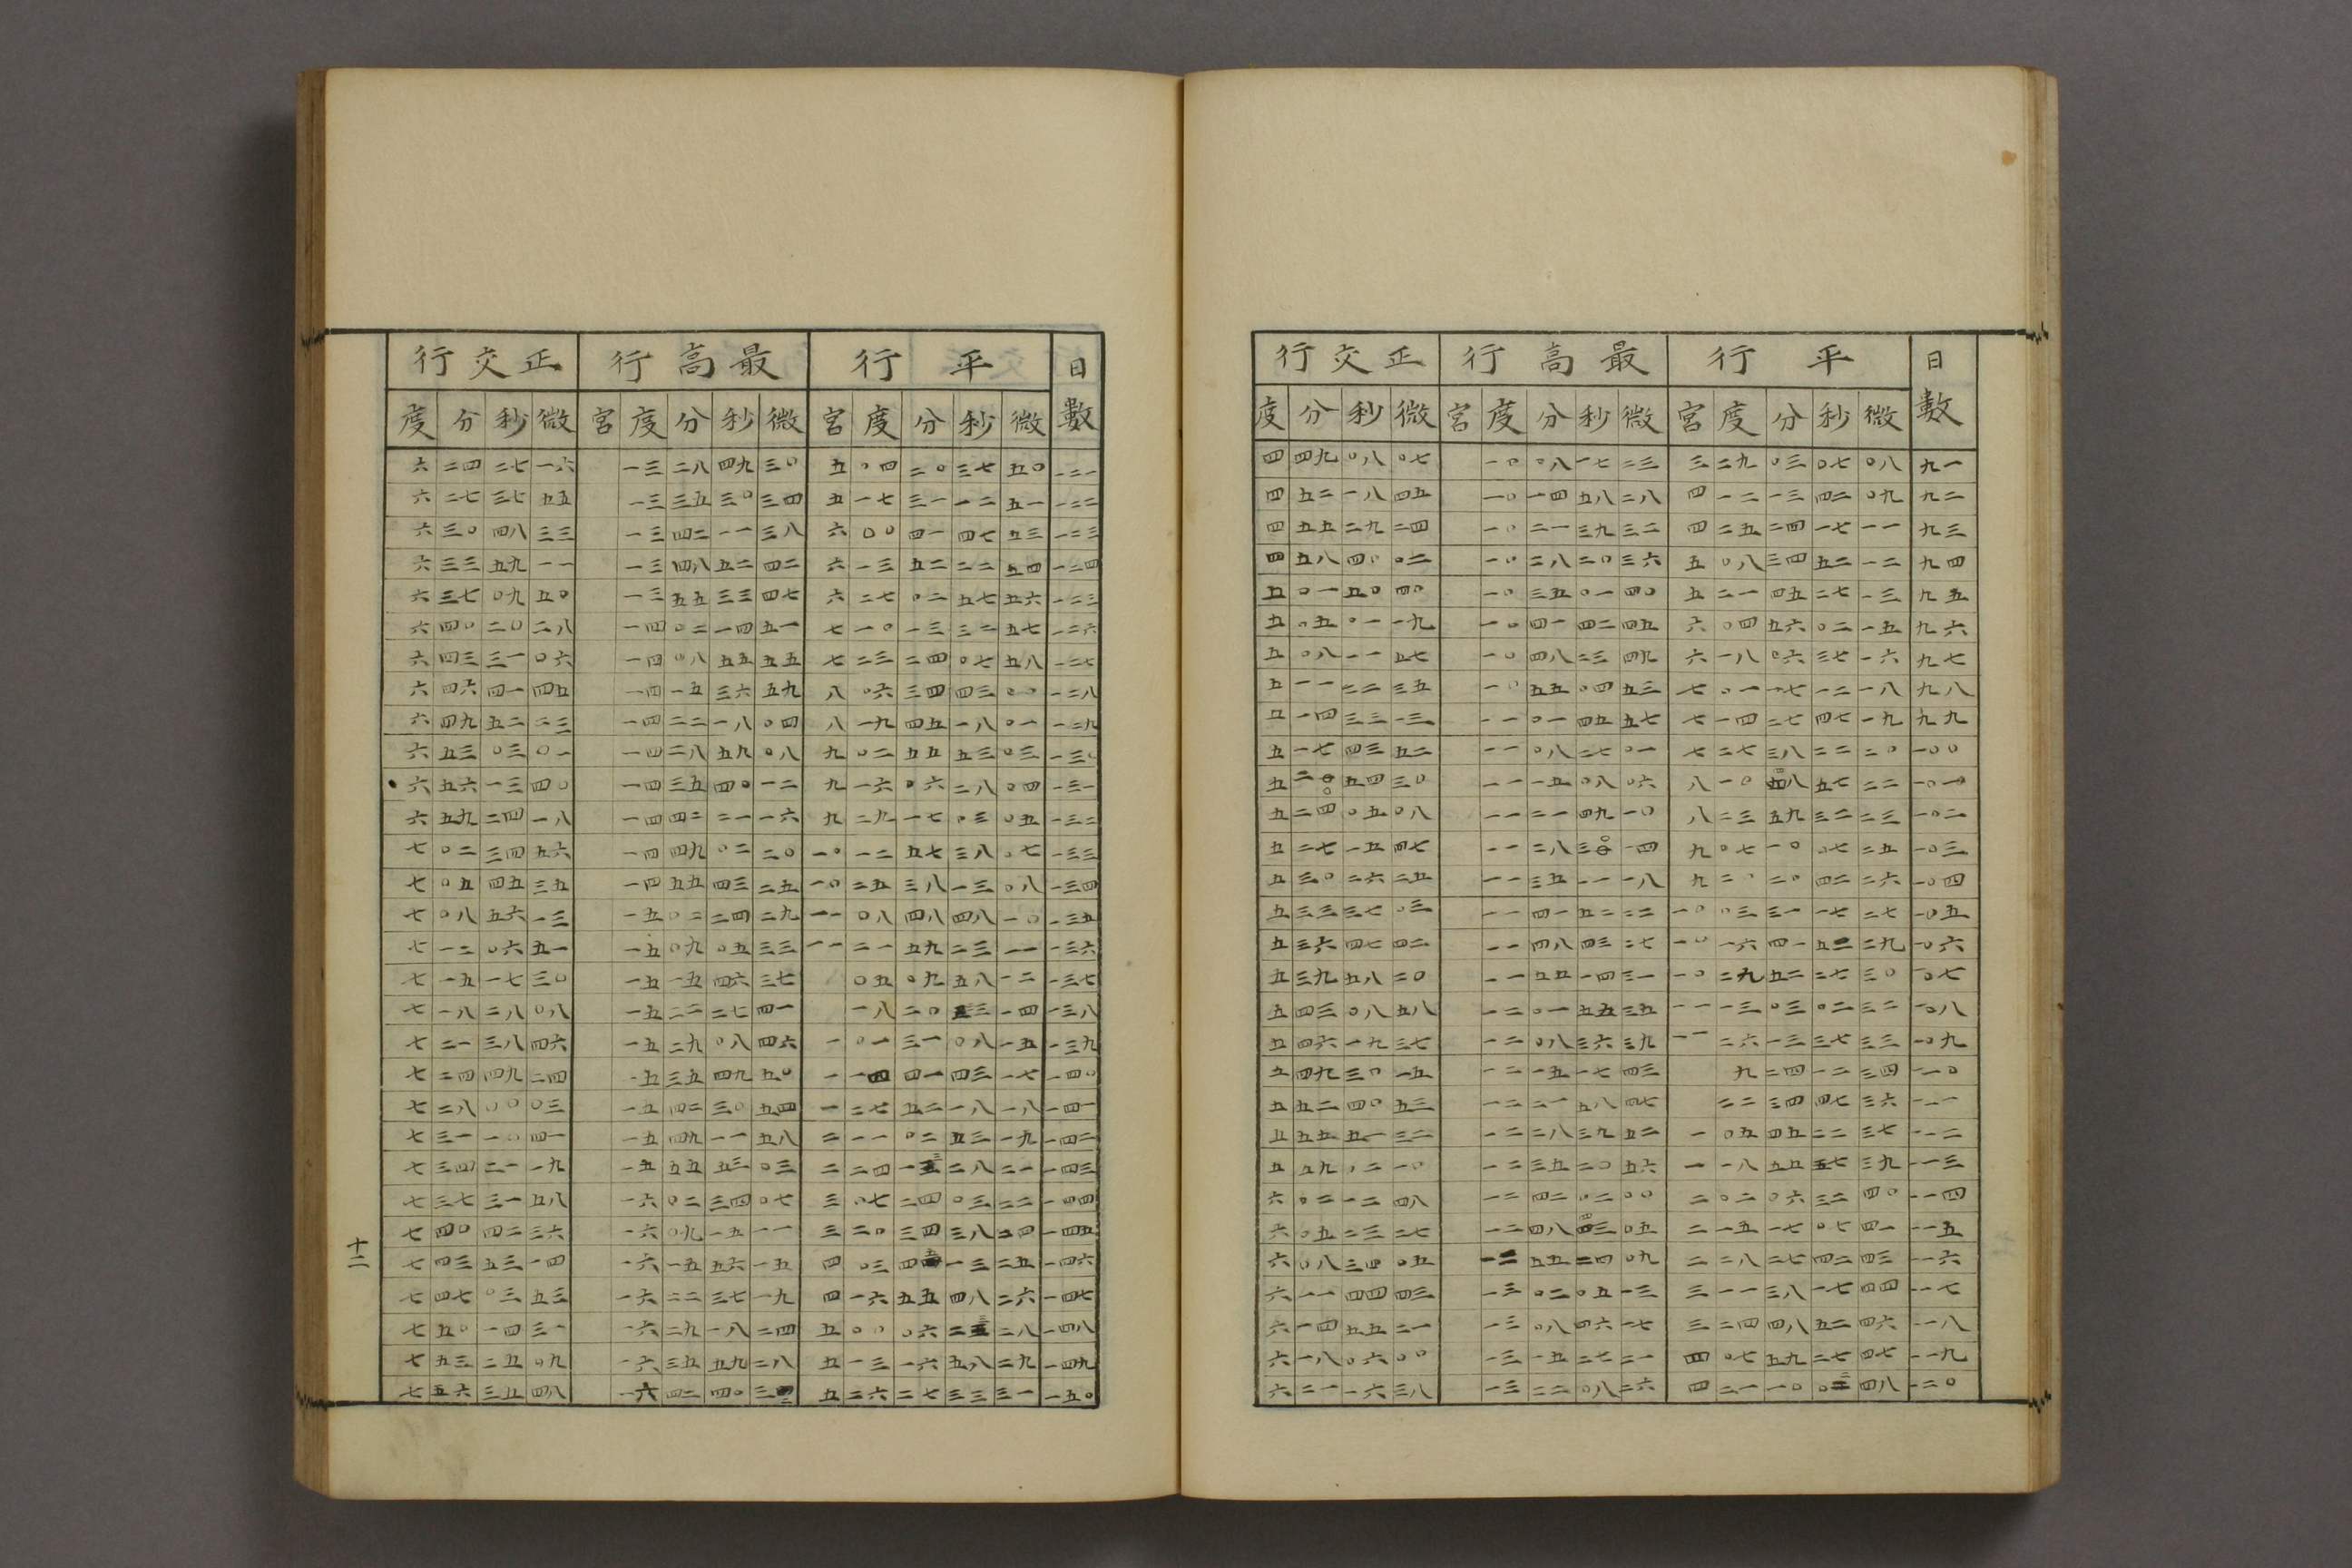 日數 平行 最高行 正交行
度 分 秒 微 宮 度 分 秒 微 宮 度 分 秒 微
四 四九 〇八 〇七 一〇 〇八 一七 二三 三 二九 〇三 〇七 〇八 九一
四 五二 一八 四五 一〇 一四 五八 二八 四 一二 一三 四二 〇九 九二
四 五五 二九 二四 一〇 二一 三九 三二 四 二五 二四 一七 一一 九三
四 五八 四〇 〇二 一〇 二八 二〇 三六 五 〇八 三四 五二 一二 九四
五 〇一 五〇 四〇 一〇 三五 〇一 四〇 五 二一 四五 二七 一三 九五
五 〇五 〇一 一九 一〇 四一 四二 四五 六 〇四 五六 〇二 一五 九六
五 〇八 一一 五七 一〇 四八 二三 四九 六 一八 〇六 三七 一六 九七
五 一一 二二 三五 一〇 五五 〇四 五三 七 〇一 一七 一二 一八 九八
五 一四 三三 一三 一一 〇一 四五 五七 七 一四 二七 四七 一九 九九
五 一七 四三 五二 一一 〇八 二七 〇一 七 二七 三八 二二 二〇 一〇〇
五 二〇 五四 三〇 一一 一五 〇八 〇六 八 一〇 四八 五七 二二 一〇一
五 二四 〇五 〇八 一一 二一 四九 一〇 八 二三 五九 三二 二三 一〇二
五 二七 一五 四七 一一 二八 三〇 一四 九 〇七 一〇 〇七 二五 一〇三
五 三〇 二六 二五 一一 三五 一一 一八 九 二〇 二〇 四二 二六 一〇四
五 三三 三七 〇三 一一 四一 五二 二二 一〇 〇三 三一 一七 二七 一〇五
五 三六 四七 四二 一一 四八 四三 二七 一〇 一六 四一 五二 二九 一〇六
五 三九 五八 二〇 一一 五五 一四 三一 一〇 二九 五二 二七 三〇 一〇七
五 四三 〇八 五八 一二 〇一 五五 三五 一一 一三 〇三 〇二 三二 一〇八
五 四六 一九 三七 一二 〇八 三六 三九 一一 二六 一三 三七 三三 一〇九
五 四九 三〇 一五 一二 一五 一七 四三 九 二四 一二 三四 一一〇
五 五二 四〇 五三 一二 二一 五八 四七 二二 三四 四七 三六 一一一
五 五五 五一 三二 一二 二八 三九 五二 一 〇五 四五 二二 三七 一一二
五 五九 〇二 一〇 一二 三五 二〇 五六 一 一八 五五 五七 三九 一一三
六 〇二 一二 四八 一二 四二 〇二 〇〇 二 〇二 〇六 三二 四〇 一一四
六 〇五 二三 二七 一二 四八 四三 〇五 二 一五 一七 〇七 四一 一一五
六 〇八 三四 〇五 一二 五五 二四 〇九 二 二八 二七 四二 四三 一一六
六 一一 四四 四三 一三 〇二 〇五 一三 三 一一 三八 一七 四四 一一七
六 一四 五五 二一 一三 〇八 四六 一七 三 二四 四八 五二 四六 一一八
六 一八 〇六 〇〇 一三 一五 二七 二一 四 〇七 五九 二七 四七 一一九
六 二一 一六 三八 一三 二二 〇八 二六 四 二一 一〇 〇二 四八 一二〇
日數 平行 最高行 正交行
度 分 秒 微 宮 度 分 秒 微 宮 度 分 秒 微
六 二四 二七 一六 一三 二八 四九 三〇 五 〇四 二〇 三七 五〇 一二一
六 二七 三七 五五 一三 三五 三〇 三四 五 一七 三一 一二 五一 一二二
六 三〇 四八 三三 一三 四二 一一 三八 六 〇〇 四一 四七 五三 一二三
六 三三 五九 一一 一三 四八 五二 四二 六 一三 五二 二二 五四 一二四
六 三七 〇九 五〇 一三 五五 三三 四七 六 二七 〇二 五七 五六 一二三
六 四〇 二〇 二八 一四 〇二 一四 五一 七 一〇 一三 三二 五七 一二六
六 四三 三一 〇六 一四 〇八 五五 五五 七 二三 二四 〇七 五八 一二七
六 四六 四一 四五 一四 一五 三六 五九 八 〇六 三四 四三 〇〇 一二八
六 四九 五二 二三 一四 二二 一八 〇四 八 一九 四五 一八 〇一 一二九
六 五三 〇三 〇一 一四 二八 五九 〇八 九 〇二 五五 五三 〇三 一三〇
六 五六 一三 四〇 一四 三五 四〇 一二 九 一六 〇六 二八 〇四 一三一
六 五九 二四 一八 一四 四二 二一 一六 九 二九 一七 〇三 〇五 一三二
七 〇二 三四 五六 一四 四九 〇二 二〇 一〇 一二 五七 三八 〇七 一三三
七 〇五 四五 三五 一四 五五 四三 二五 一〇 二五 三八 一三 〇八 一三四
七 〇八 五六 一三 一五 〇二 二四 二九 一一 〇八 四八 四八 一〇 一三五
七 一二 〇六 五一 一五 〇九 〇五 三三 一一 二一 五九 二三 一一 一三六
七 一五 一七 三〇 一五 一五 四六 三七 〇五 〇九 五八 一二 一三七
七 一八 二八 〇八 一五 二二 二七 四一 一八 二〇 三三 一四 一三八
七 二一 三八 四六 一五 二九 〇八 四六 一 〇一 三一 〇八 一五 一三九
七 二四 四九 二四 一五 三五 四九 五〇 一 一四 四一 四三 一七 一四〇
七 二八 〇〇 〇三 一五 四二 三〇 五四 一 二七 五二 一八 一八 一四一
七 三一 一〇 四一 一五 四九 一一 五八 二 一一 〇二 五三 一九 一四二
七 三四 二一 一九 一五 五五 五三 〇三 二 二四 一三 二八 二一 一四三
七 三七 三一 五八 一六 〇二 三四 〇七 三 〇七 二四 〇三 二二 一四四
七 四〇 四二 三六 一六 〇九 一五 一一 三 二〇 三四 三八 二四 一四五
七 四三 五三 一四 一六 一五 五六 一五 四 〇三 四五 一三 二五 一四六
七 四七 〇三 五三 一六 二二 三七 一九 四 一六 五五 四八 二六 一四七
七 五〇 一四 三一 一六 二九 一八 二四 五 〇〇 〇六 二三 二八 一四八
七 五三 二五 〇九 一六 三五 五九 二八 五 一三 一六 五八 二九 一四九
七 五六 三五 四八 一六 四二 四〇 三二 五 二六 二七 三三 三一 一五〇
十二